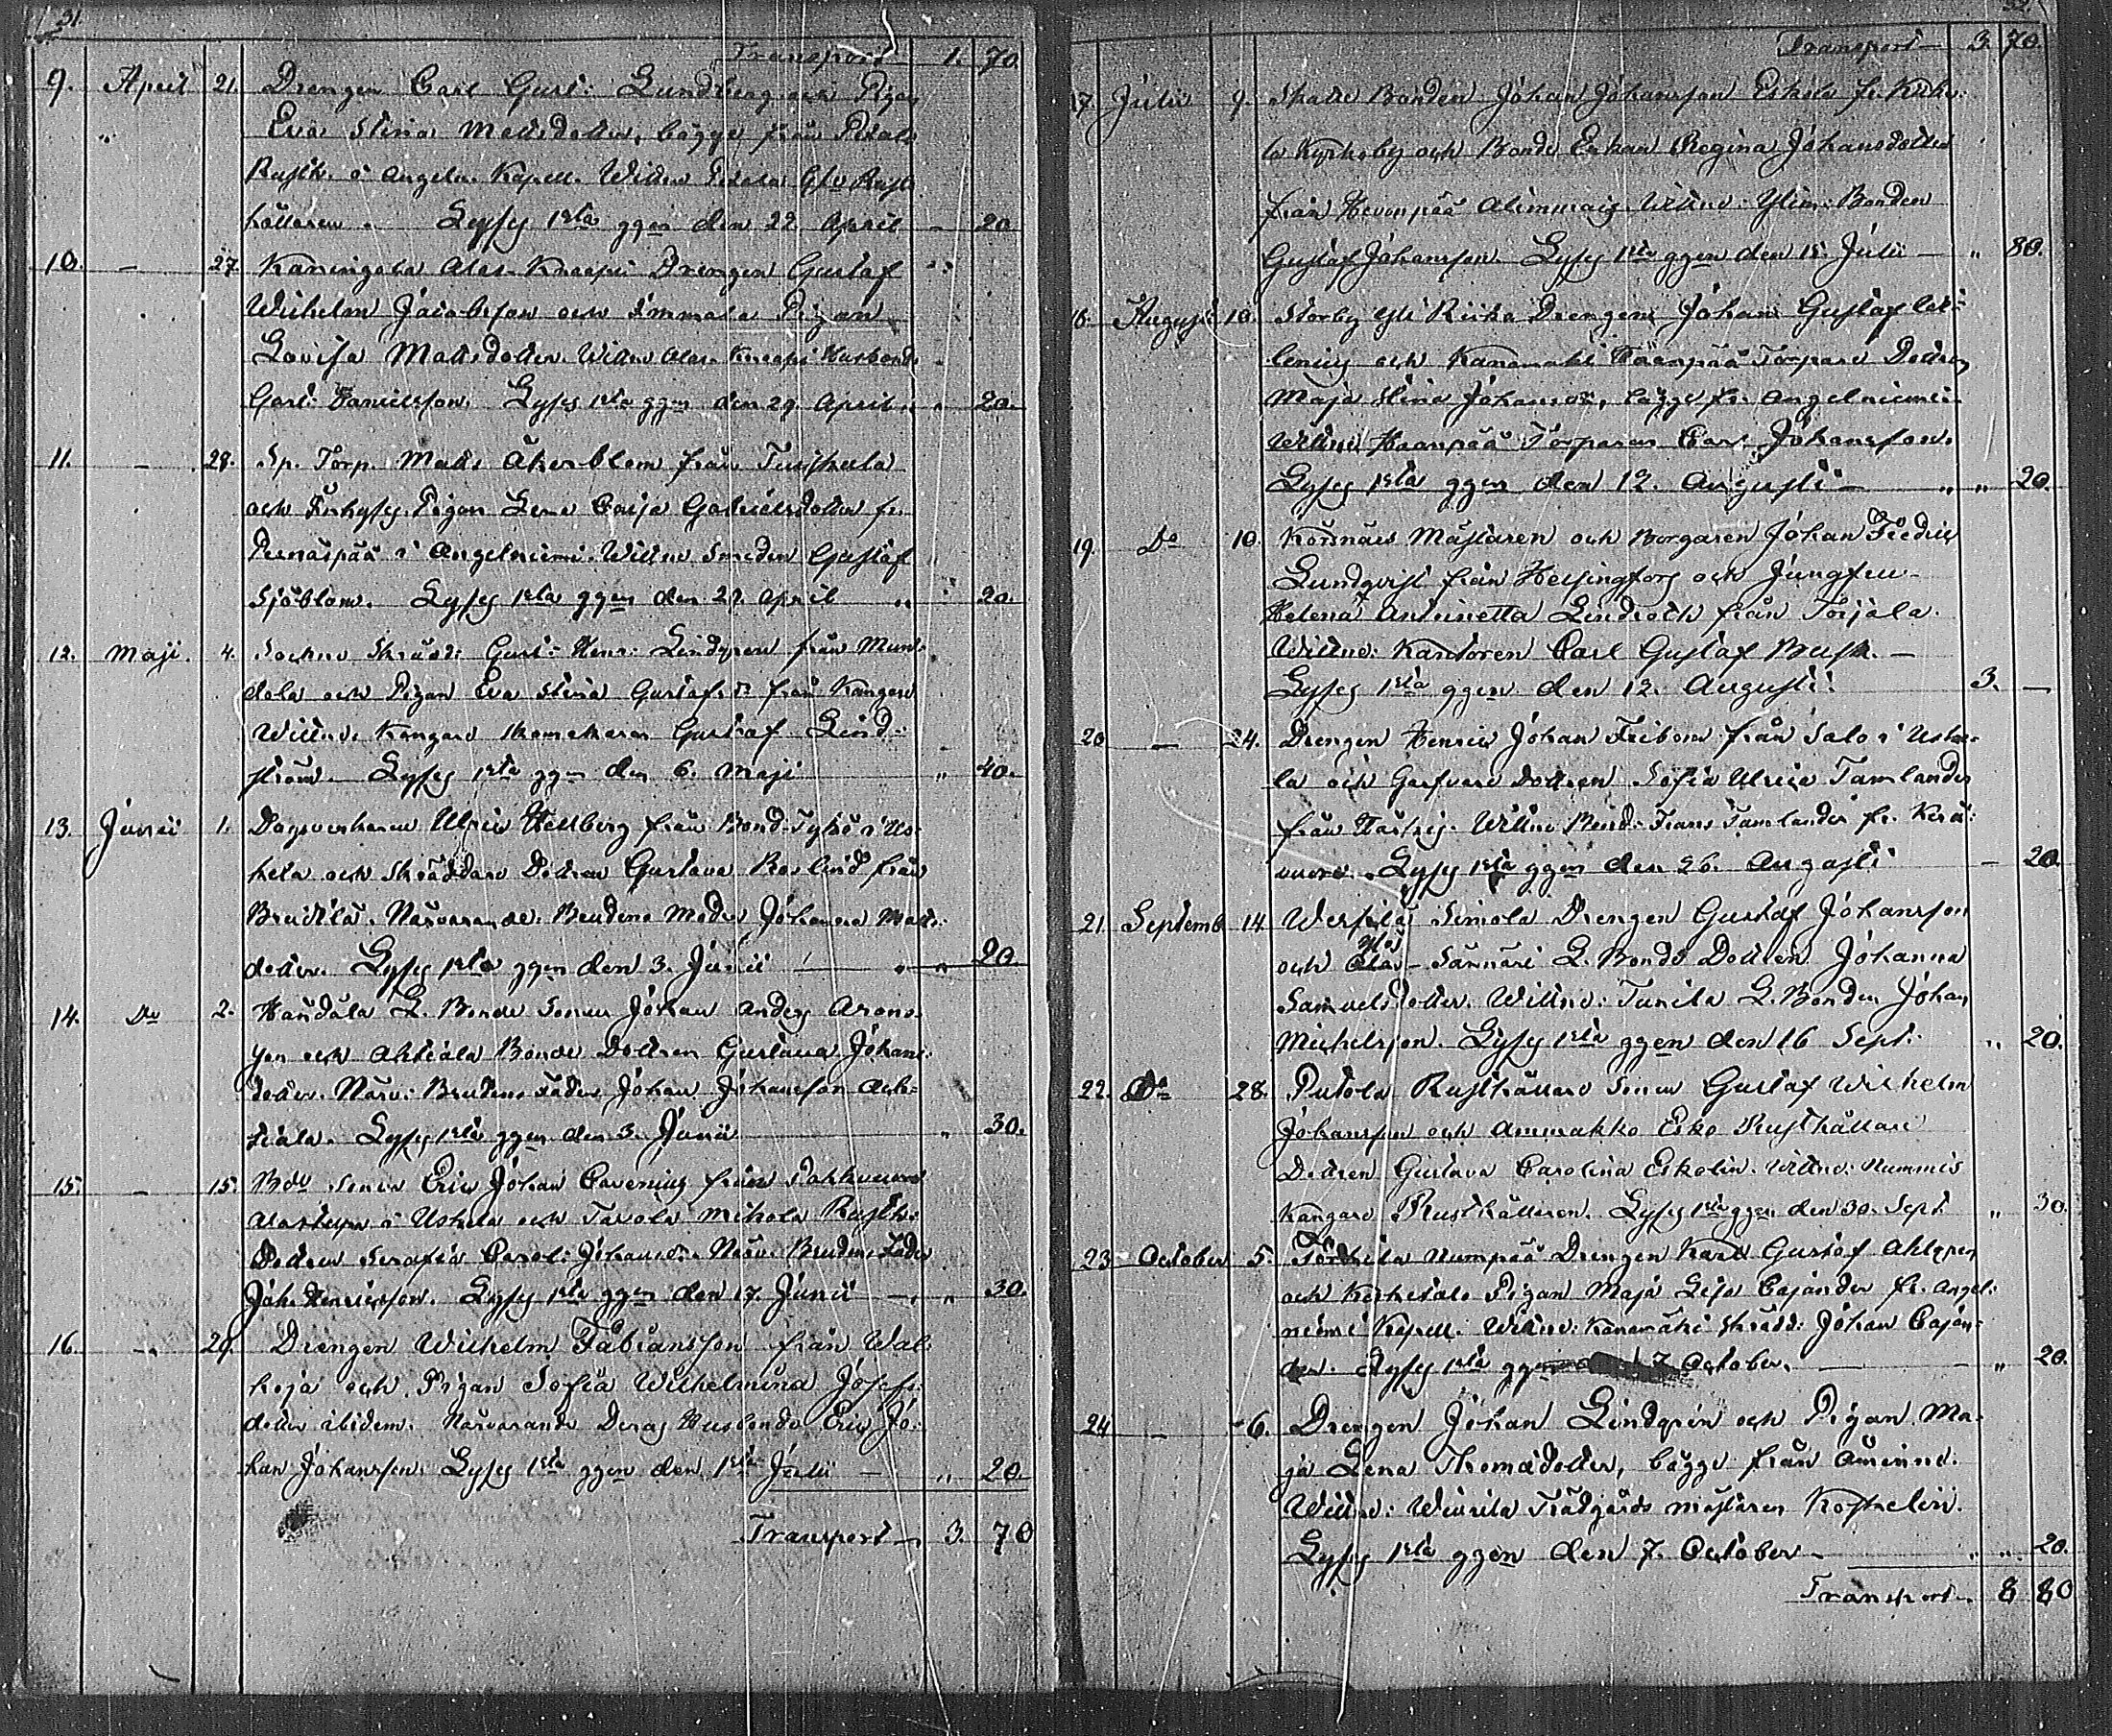 31.
Transport 1. 70.
9. April 21. Drengen Carl Gust: Lundberg och Pigan
" Eva Stina Mattsdotter, bägge från Pitals
Rusth. i Angeln. Kapell. Wittne Pitala Rust
hållaren. Lyses 1sta ggen den 22 April - 20
10. - 27. Karingola Alas-Knaapi Drengen Gustaf
Wilhelm Jacobsson och Immala Pigan
Lovisa Mattsdotter. Wittne Alas-Knaapi Husbonde
Gust: Danielsson. Lyses 1sta ggen den 29 April " " 20.
11. - 28. Sp. Torp. Matts Åkerblom från Tuiskula
och Pigan Lena Caisa Gabrielsdotter fr.
Peräspää i Angelniemi. Wittne Smeden Gustaf
Sjöblom. Lyses 1sta ggen den 29. April " 20.
12. Maji. 4. Sockne Skrädd: Gust: Henr: Lindgren från Mun-
dola och Pigan Eva Stina Gustafsdr från Kangare
Wittne. Kangare Skomakaren Gustaf Lind-
ström. Lyses 1sta ggen den 6. Maji " 40.
13. Junii 1. Dagsverkaren Ulric Hellberg från Bond-Tykö i Us-
kela och Skräddare Dottren Gustava Roslind från
Brudens Moder Johanna Matts-
dotter. Lyses 1sta ggen den 3. Junii " " 20.
14. Do 2. Handala L. Bonde Sonen Johan Anders Arons-
son och Ahtiala Bonde Dottren Gustava Johans-
dotter. Närv: Brudens Fader Johan Johansson Ah-
tiala. Lyses 1sta ggen den 3. Junii " 30.
15. - 15. Bde Sonen Eric Johan Cavenius från Pakkavuori
i Uskela och Tavola Mikola Rusth:
Dottren Serafia Carol: Johansdr. Närv. Brudens Fader
Joh. Henricsson. Lyses 1sta ggen den 17. Junii " 30.
16. - 29. Drengen Wilhelm Fabiansson från Wal-
koja och Pigan Sofia Wilhelmina Josefs-
dotter ibidem. Närvarande Deras Husbonde Eric Jo-
han Johansson. Lyses 1sta ggen den 1sta Julii - " 20.
Transport - 3. 70
32.
Transport - 3. 70.
17. Julii 9. Skatte Bonden Johan Johansson Eskola fr. Kisko
Kyrkoby och Bonde Enkan Regina Johansdotter
från Hevonpää Wittne: Bonden
Gustaf Johansson. Lyses 1sta ggen den 15. Julii - " 80.
Augusti 10. Storby Yli Kiska Drengen Johan Gustaf
lenius och Kanamäki Haanpää Torpare Dottren
Maja Stina Johansdr, bägge fr. Angelniemi
Wittne Haanpää Torparen Carl Johansson.
Lyses 1sta ggen den 12. Augusti - " " 20.
19. Do 10. Körsnärs Mästaren och Borgaren Johan Fredric
Lundqvist från Helsingfors och Jungfru
Helena Antoinetta Lindroth från Torjala.
Wittne: Kantoren Carl Gustaf Busk. -
Lyses 1sta ggen den 12. Augusti. 3. -
20 - 24. Drengen Henric Johan Fribom från Salo i Uske-
la och Garfvare Dottren Sofia Ulrica Tamlander
från Wittne Frans Tamlander fr.
Lyses 1sta ggen den 26. Augusti - 20.
21. Septemb 14. Simola Drengen Gustaf Johansson
och Yli Sännäri L. Bonde Dottren Johanna
Samuelsdotter. Wittne: Tunila L. Bonden Johan
Michelsson. Lyses 1sta ggen den 16 Sept: " 20.
22. Do 28. Putola Rusthållare Sonen Gustaf Wilhelm
Johansson och Ammakko Esko Rusthållare
Dottren Gustava Carolina Eskolin. Wittne: Nummis
Kangare Rusthållaren. Lyses 1sta ggen den 30. Sept " 30.
23 October 5. Numpää Drengen Karl Gustaf Ahlgren
och Pigan Maja Lisa Cajander fr. Angel-
niemi Kapell. Wittne: Kanamäki Skrädd: Johan Cajan-
der. Lyses 1sta ggen 7 October. " 20.
24 - 6. Drengen Johan Lindgren och Pigan Ma-
ja Lena Thomædotter, bägge från Åminne.
Wittne: Wiurila Trädgårds mästaren Koskelin.
Lyses 1sta ggen den 7. October - " " 20.
Transport - 8 80